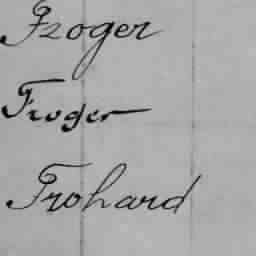 Froger
Froger
Frohard